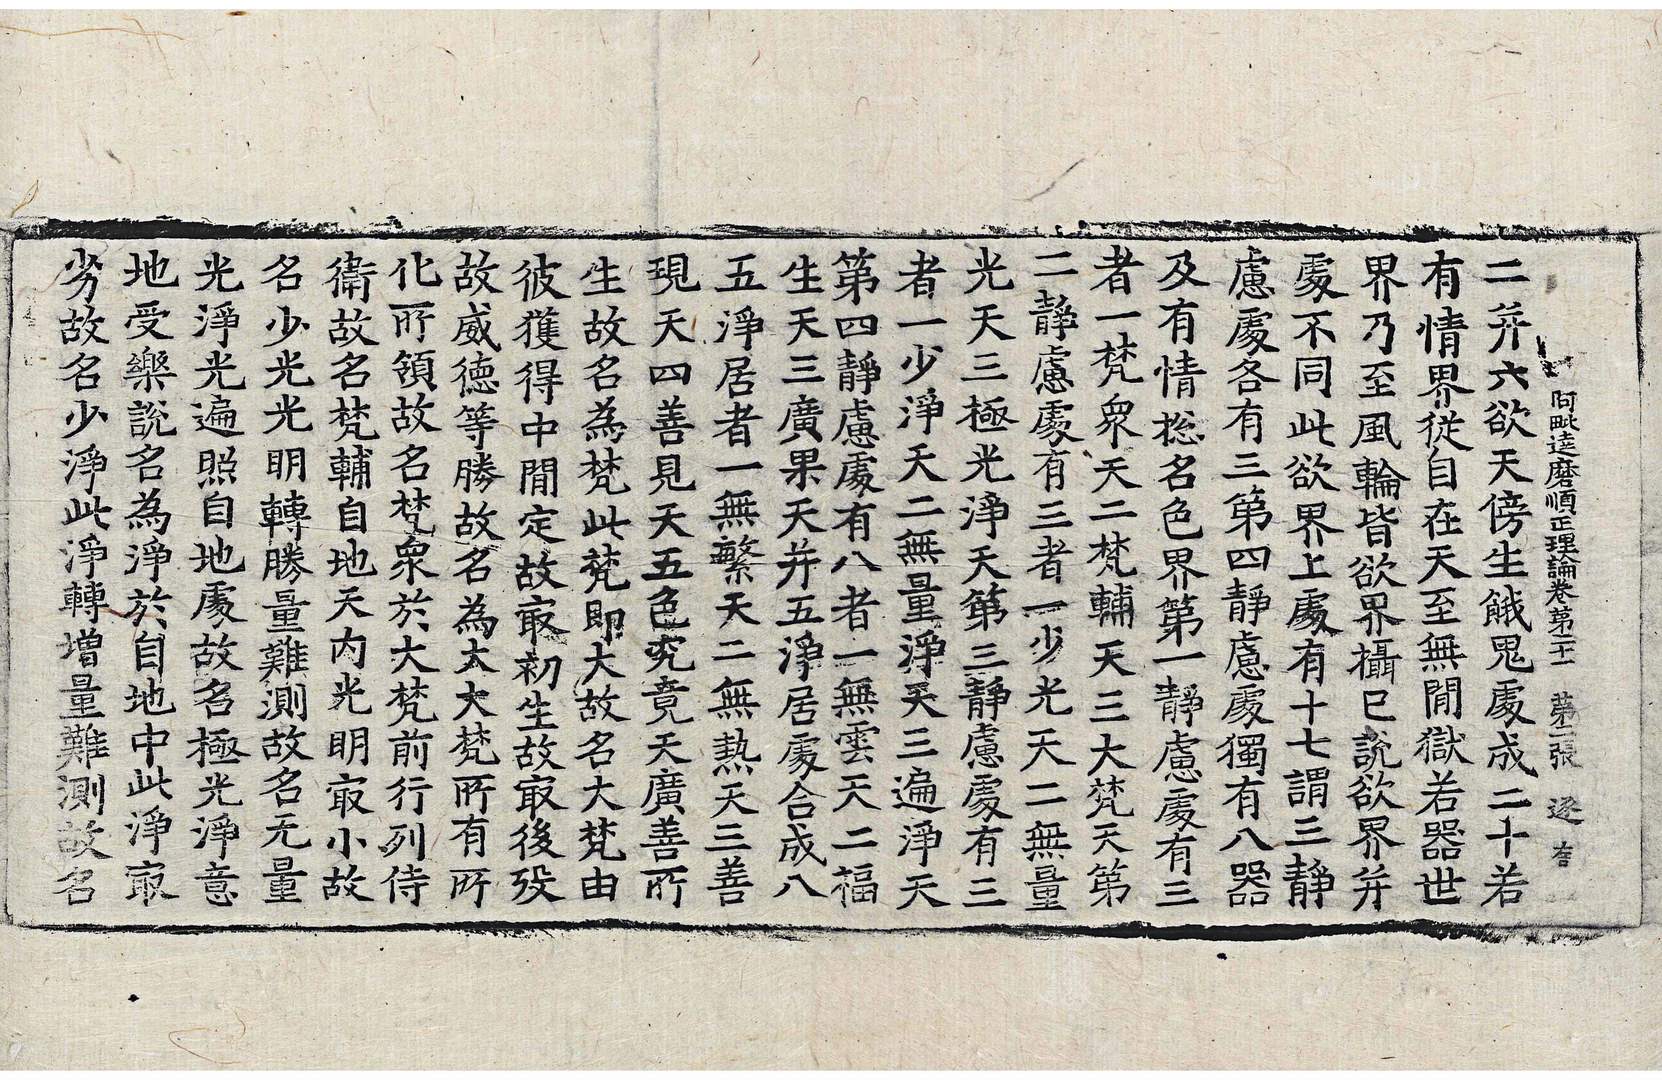 阿毗達磨順正理論卷第二十一 第二張 逐
二并六欲天傍生餓鬼處成二十若
有情界從自在天至無間獄若器世
界乃至風輪皆欲界攝已說欲界并
處不同此欲界上處有十七謂三靜
慮處各有三第四靜慮處獨有八器
及有情㧾名色界第一靜慮處有三
者一梵衆天二梵輔天三大梵天第
二靜慮處有三者一少光天二無量
光天三極光淨天第三靜慮處有三
者一少淨天二無量淨天三遍淨天
第四靜慮處有八者一無雲天二福
生天三廣果天并五淨居處合成八
五淨居者一無繁天二無熱天三善
現天四善見天五色究竟天廣善所
生故名為梵此梵即大故名大梵由
彼獲得中閒定故㝡初生故㝡後歿
故威德等勝故名為大大梵所有所
化所領故名梵衆於大梵前行列侍
衛故名梵輔自地天內光明㝡小故
名少光光明轉勝量難測故名无量
光淨光遍照自地處故名極光淨意
地受樂說名為淨於自地中此淨㝡
劣故名少淨此淨轉增量難測故名